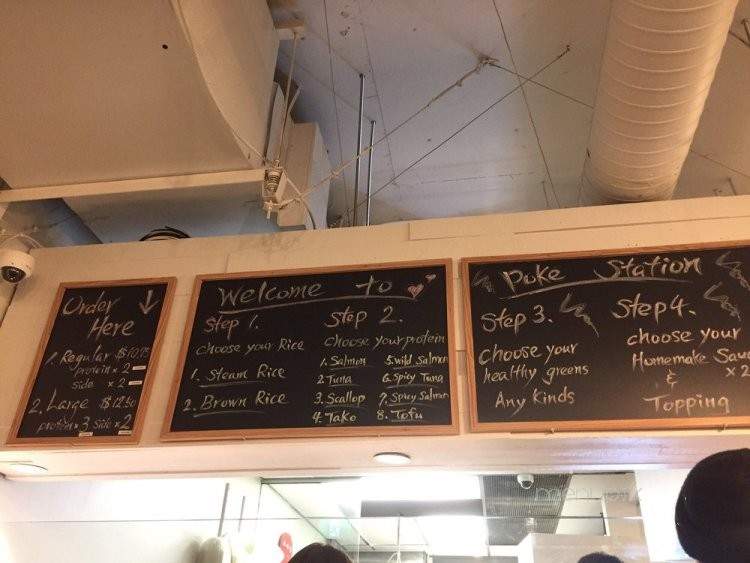 Order
Here
1. Regular $10.95
protein × 2
side × 2
2. Large $12.50
protein × 3 side × 2
Welcome to
Step 1.
choose your Rice
1. Steam Rice
2. Brown Rice
Step 2.
choose your protein
1. Salmon
2. Tuna
3. Scallop
4. Tako
5. wild Salmon
6. Spicy Tuna
7. Spicy Salmon
8. Tofu
Poke Station
Step 3.
choose your
healthy greens
Any Kinds
Step 4.
choose your
Homemake Sau
x 2
&
Topping